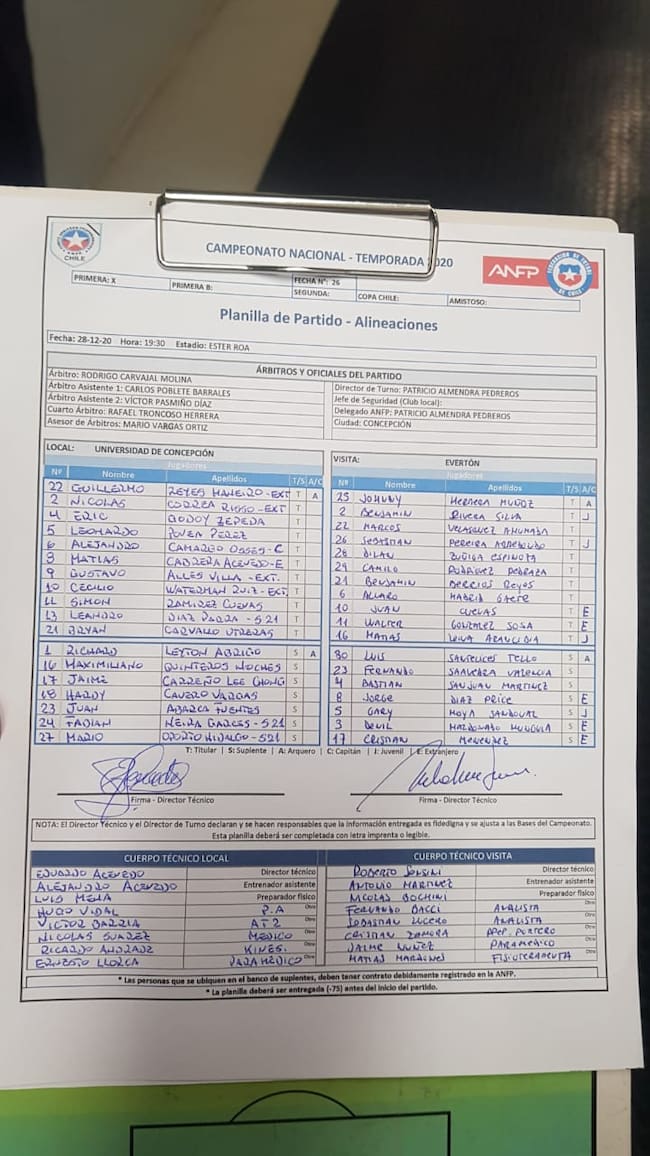 CHILE
CAMPEONATO NACIONAL - TEMPORADA 2020
ANFP
PRIMERA: X PRIMERA B: FECHA N°: 26
SEGUNDA: COPA CHILE: AMISTOSO:
Planilla de Partido - Alineaciones
Fecha: 28-12-20 Hora: 19:30 Estadio: ESTER ROA
ÁRBITROS Y OFICIALES DEL PARTIDO
Árbitro: RODRIGO CARVAJAL MOLINA
Árbitro Asistente 1: CARLOS POBLETE BARRALES
Árbitro Asistente 2: VÍCTOR PASMIÑO DÍAZ
Cuarto Árbitro: RAFAEL TRONCOSO HERRERA
Asesor de Árbitros: MARIO VARGAS ORTIZ
Director de Turno: PATRICIO ALMENDRA PEDREROS
Jefe de Seguridad (Club local):
Delegado ANFP: PATRICIO ALMENDRA PEDREROS
Ciudad: CONCEPCIÓN
LOCAL: UNIVERSIDAD DE CONCEPCIÓN
Jugadores
Nº Nombre Apellidos T/S A/C
22 GUILLERMO REYES MANEIRO - EXT T A
2 NICOLAS CORREA RISSO - EXT T
4 ERIC GODOY ZEPEDA T
5 LEONARDO POVEA PEREZ T
6 ALEJANDRO CAMARGO OSSES - C T
8 MATIAS CABRERA ACEVEDO - E T
9 GUSTAVO ALLES VILLA - EXT. T
10 CECILIO WATERMAN RUIZ - EXT. T
11 SIMON RAMIREZ CUEVAS T
13 LEANDRO DIAZ PARRA - S21 T
21 BRYAN CARVALLO UTRERAS T
1 RICHARD LEYTON ABRIGO S A
16 MAXIMILIANO QUINTEROS NOCHES S
17 JAIME CARREÑO LEE CHONG S
18 HARDY CAVERO VARGAS S
23 JUAN ABARCA FUENTES S
24 FABIAN NEIRA GARCES - S21 S
27 MARIO OPORTO HIDALGO - S21 S
VISITA: EVERTÓN
Jugadores
Nº Nombre Apellidos T/S A/C
25 JOHNNY HERRERA MUÑOZ T A
2 BENJAMIN RIVERA SILVA T J
22 MARCOS VELASQUEZ AHUMADA T
26 SEBASTIAN PEREIRA T J
28 DILAN ZUÑIGA ESPINOZA T
29 CAMILO RODRIGUEZ PEDRAZA T
21 BENJAMIN BERRIOS REYES T
6 ALVARO MADRID GAETE T
10 JUAN CUEVAS T E
11 WALTER GONZALEZ SOSA T E
16 MATIAS LEIVA ARANCIBIA T J
30 LUIS SANTELICES TELLO S A
23 FERNANDO SAAVEDRA VALENCIA S
4 BASTIAN SAN JUAN MARTINEZ S
8 JORGE DIAZ PRICE S E
5 GARY MOYA SANDOVAL S J
3 MALDONADO S E
17 CRISTIAN MENENDEZ S E
T: Titular | S: Suplente | A: Arquero | C: Capitán | J: Juvenil | E: Extranjero
Firma - Director Técnico Firma - Director Técnico
NOTA: El Director Técnico y el Director de Turno declaran y se hacen responsables que la información entregada es fidedigna y se ajusta a las Bases del Campeonato.
Esta planilla deberá ser completada con letra imprenta o legible.
CUERPO TÉCNICO LOCAL
EDUARDO ACEVEDO Director técnico
ALEJANDRO ACEVEDO Entrenador asistente
LUIS MENA Preparador físico
HUGO VIDAL P.A Otro
VICTOR BARRIA AT2 Otro
NICOLAS SUAREZ MEDICO Otro
RICARDO ANDRADE KINES. Otro
ERNESTO LLORCA PARAMÉDICO Otro
CUERPO TÉCNICO VISITA
ROBERTO SENSINI Director técnico
ANTONIO MARTINEZ Entrenador asistente
NICOLAS BOCHINI Preparador físico
FERNANDO BACCI ANALISTA Otro
SEBASTIAN LUCERO ANALISTA Otro
CRISTIAN ZAMORA PREP. PORTERO Otro
JAIME NUÑEZ PARAMEDICO Otro
MATIAS FISIOTERAPEUTA Otro
* Las personas que se ubiquen en el banco de suplentes, deben tener contrato debidamente registrado en la ANFP.
* La planilla deberá ser entregada (-75) antes del inicio del partido.